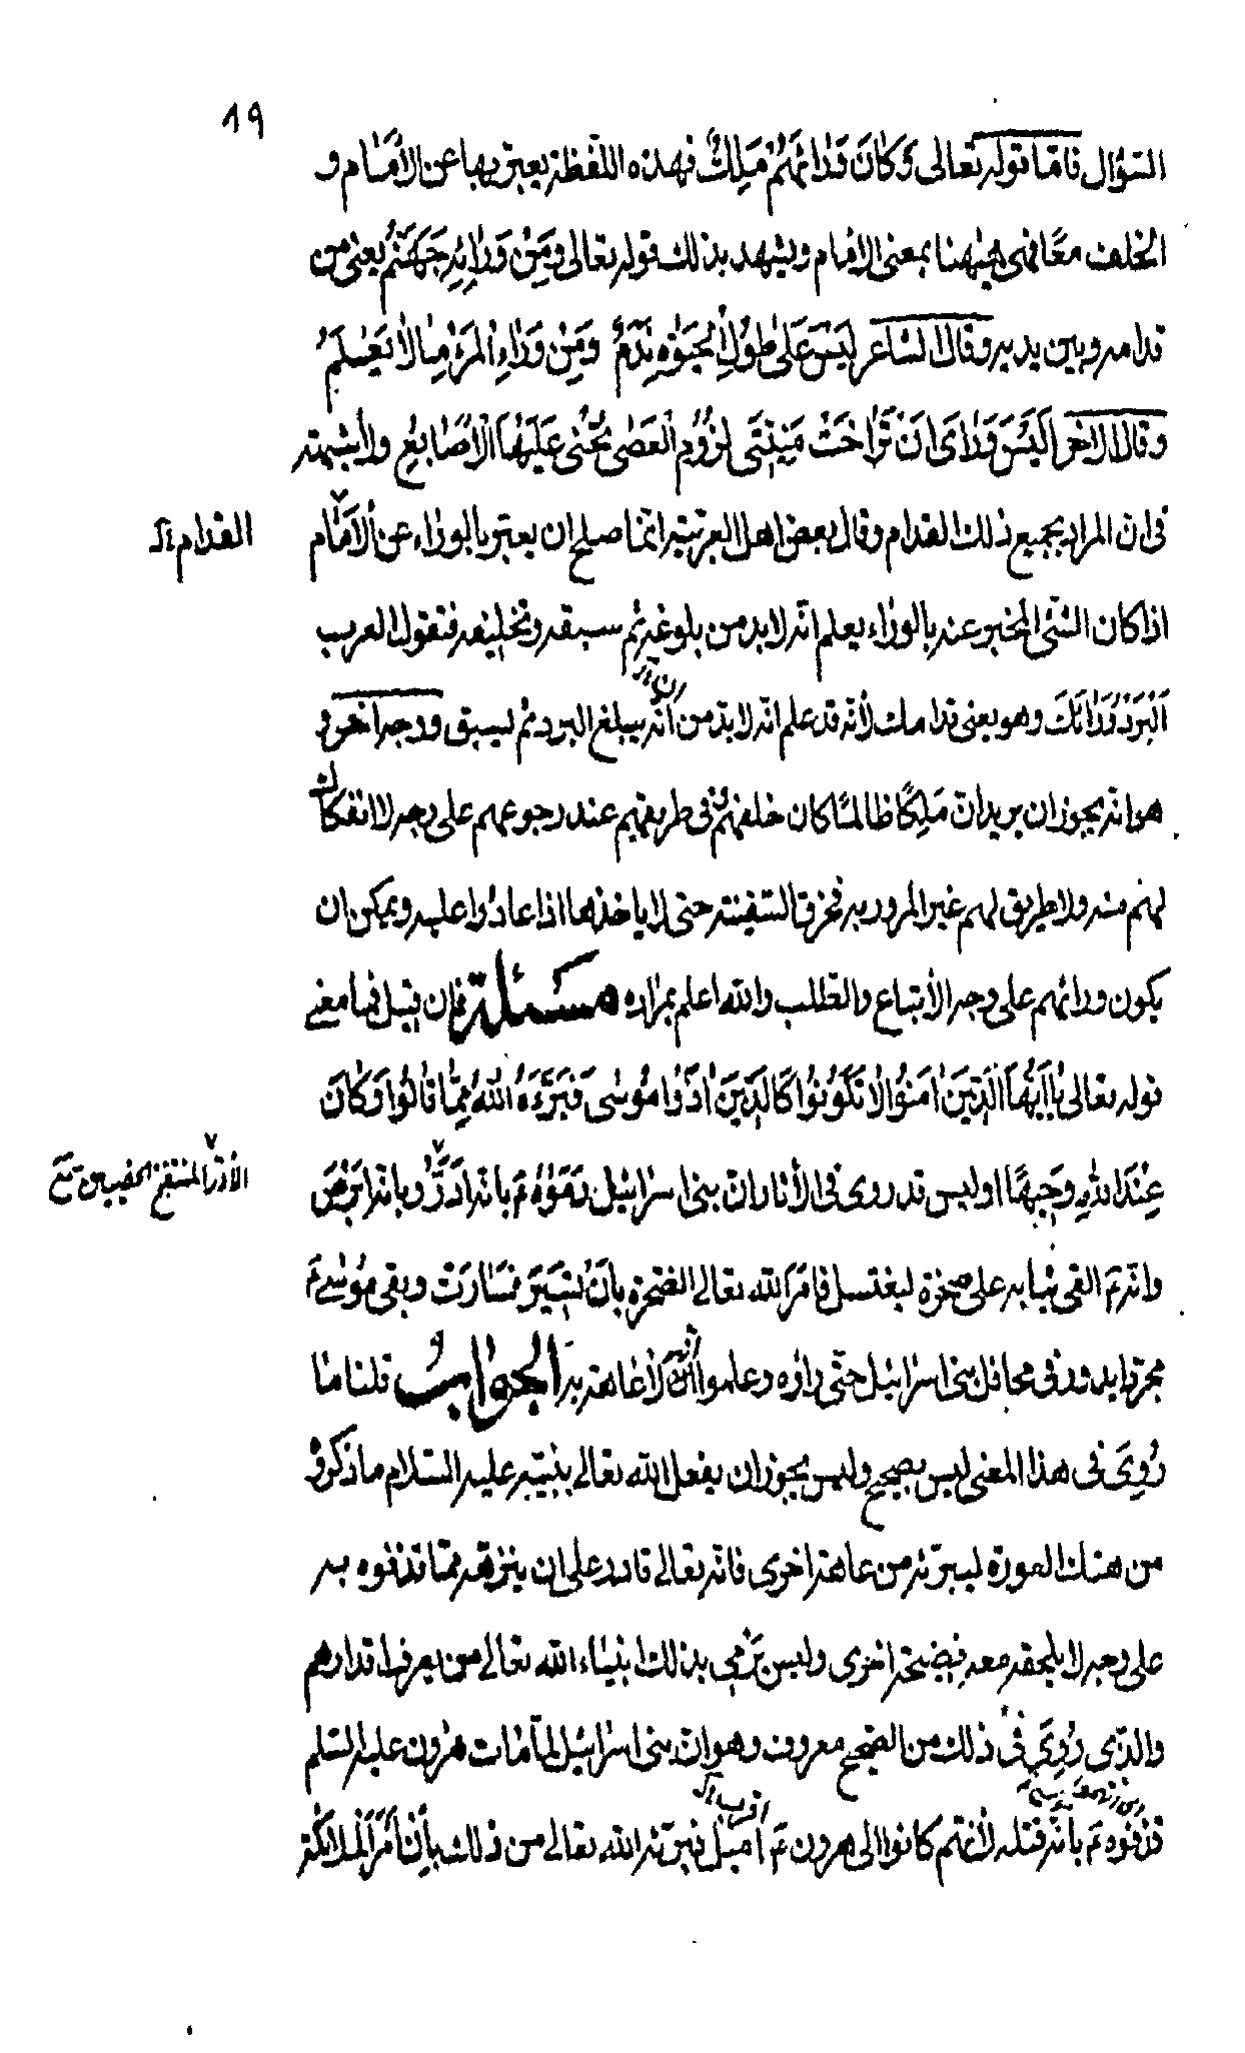 ٨٩
السؤال فامّا قوله تعالى وَكَانَ وَرَائَهُمْ مَلِكٌ فهذه اللفظة يعبّر بها عن الأمَام و
الخلف معًا فهى هيٰهنا بمعنى الامام ويشهد بذلك قوله تعالى وَمِنْ وَرَائِهِ جَهَنَّمُ يعنى من
قدامه وبين يديه وقال الشاعر لَيْسَ عَلىٰ طُولِ الْحَيٰوةِ نَدَمٌ وَمِنْ وَرَاءِ الْمَرْءِ مَا لاٰ يَعْلَمُ
وقال الاخر اَلَيْسَ وَرَاءىٰ اَنْ تَرَاخَتْ مَنِيَّتى لُزُومُ الْعَصٰى تُحْنٰى عَلَيْهَا الْاَصَابِعُ ولا شبهة
فى انّ المراد بجميع ذلك القدام وقال بعض اهل العربيّة انّما صلح ان يعبّر بالوراء عن الأَمَام
القدام
اذا كان الشّئ المخبر عنه بالوراء يعلم انّه لا بد من بلوغه ثم سبقه وتخليفه فتقول العرب
اَلْبَرْدُ وَرَائَكَ وهو يعنى قدامك لأنّه قد علم انّه لا بدّ من انّه يبلغ البرد ثم يسبق ووجه اخر و
هو انّه يجوز ان يريد انّ مَلِكًا ظالمًا كان خلفهُمْ فى طريقهم عند رجوعهم على وجه لا انفكاك
لهم منه ولا طريق لهم غير المرور به فخرق السّفينة حتى لا ياخذها اذا عادوا عليه ويمكن ان
يكون ورائهم على وجه الأتباع والطّلب والله اعلم بمراده مسئلة فان قيل فما معنى
قوله تعالى يٰا اَيُّهَا الَّذِينَ اٰمَنُوا لاٰ تَكُونُوا كَالَّذِينَ اٰذَوْا مُوسٰى فَبَرَّءَهُ اللهُ مِمَّا قَالُوا وَكَانَ
عِنْدَ اللهِ وَجِيهًا اوليس قد روى فى الأثار انّ بنى اسرائيل رَمَوْهُ ع بانّه اَدَرُّ وبانّه ابْرَصُ
الأدرّ المنتفخ الخصيين
وانّه ع القى ثيابه على صخرة ليغتسل فامَرَ الله تعالى الصّخرة بِاَنْ تَسِيرَ فسَارَتْ وبقى مُوسىٰ ع
مجرّدا يدور فى محافل بنى اسرائيل حتّى راوه وعلموا انّه لا عاهة به الجواب قلنا ما
رُوِىَ فى هذا المعنى ليس بصحيح وليس يجوز ان يفعل الله تعالى بنبيّه عليه السّلام ما ذكروه
من هتك العورة ليبرّئه من عاهة اخرى فانّه تعالى قادر على ان ينزّهه ممّا قذفوه به
على وجه لا يلحقه معه فضيحة اخرى وليس يَرْمى بذلك انبياء الله تعالى من يعرف اقدارهم
والذّى رُوِىَ فى ذلك من الصّحيح معروف وهو انّ بنى اسرائيل لمّا مات هٰرون عليه السّلم
قذفوه ع بانّه قتله لأنّهم كانوا الى هرون ع اميل فبرّئه الله تعالى من ذلك بِاَنْ اَمَرَ الْمَلائكة